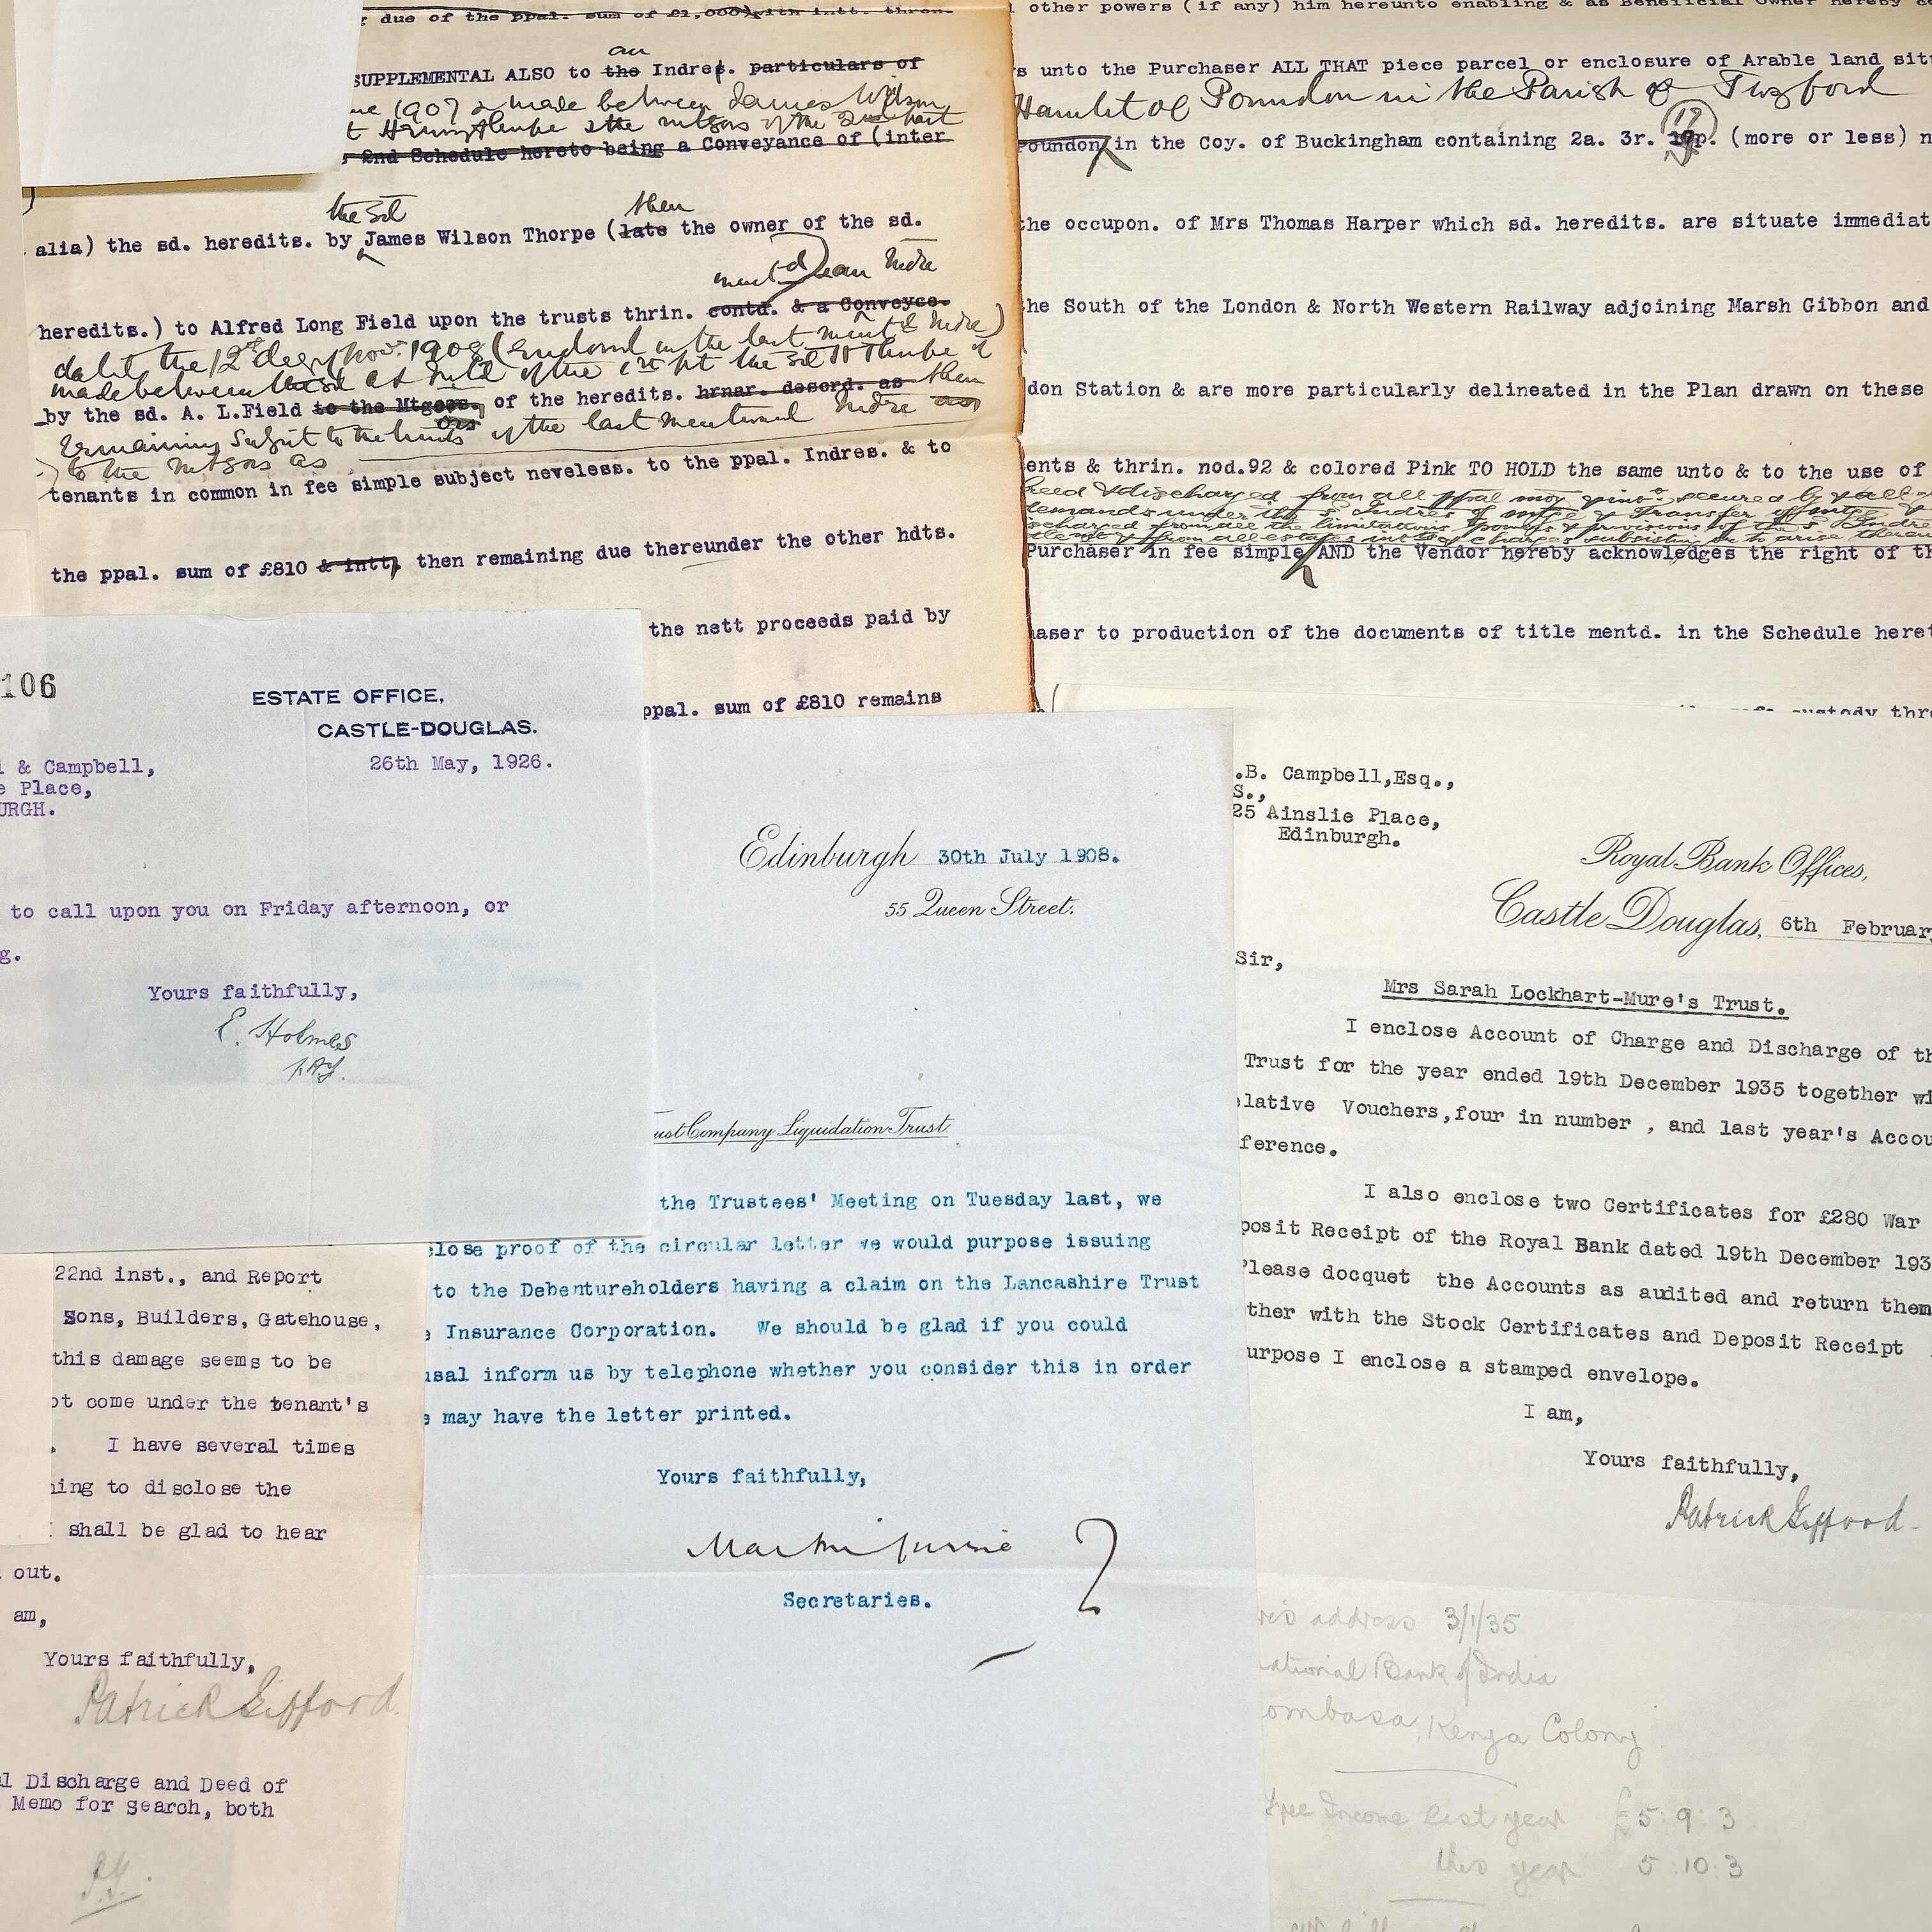 due of the ppal. sum of £1,000) with intt. thron.
an
SUPPLEMENTAL ALSO to the Indres. particulars of
1907 & made between James Wilson
2nd Schedule hereto being a Conveyance of (inter
the sd then
alia) the sd. heredits. by James Wilson Thorpe (late the owner of the sd.
heredits.) to Alfred Long Field upon the trusts thrin. contd. & a Conveyce.
by the sd. A. L.Field to the Mtgors. of the heredits. hrnar. descrd. as then
of the last mentioned Indre
to the mtgors as
tenants in common in fee simple subject neveless. to the ppal. Indres. & to
the ppal. sum of £810 & intt. then remaining due thereunder the other hdts.
the nett proceeds paid by
ppal. sum of £810 remains
other powers (if any) him hereunto enabling & as Beneficial Owner hereby
unto the Purchaser ALL THAT piece parcel or enclosure of Arable land
Hamlet of Poundon in the Parish of Twyford
19
Poundon in the Coy. of Buckingham containing 2a. 3r. 19p. (more or less)
the occupon. of Mrs Thomas Harper which sd. heredits. are situate immediat
the South of the London & North Western Railway adjoining Marsh Gibbon and
don Station & are more particularly delineated in the Plan drawn on these
ents & thrin. nod.92 & colored Pink TO HOLD the same unto & to the use of
discharged from all ppal moy
demands under the sd Indres of mtge & Transfer of mtge &
from all the limitations powers & provisions of the sd Indre
Purchaser in fee simple AND the Vendor hereby acknowledges the right of th
haser to production of the documents of title mentd. in the Schedule heret
custody
106
ESTATE OFFICE,
CASTLE-DOUGLAS.
26th May, 1926.
& Campbell,
Place,
URGH.
to call upon you on Friday afternoon, or
g.
Yours faithfully,
E. Holmes
Edinburgh 30th July 1908.
55 Queen Street.
ust Company Liquidation Trust
the Trustees' Meeting on Tuesday last, we
close proof of the circular letter we would purpose issuing
to the Debentureholders having a claim on the Lancashire Trust
Insurance Corporation. We should be glad if you could
usal inform us by telephone whether you consider this in order
may have the letter printed.
Yours faithfully,
Martin Currie
Secretaries.
.B. Campbell,Esq.,
S.,
25 Ainslie Place,
Edinburgh.
Royal Bank Offices,
Castle Douglas, 6th February
Sir,
Mrs Sarah Lockhart-Mure's Trust.
I enclose Account of Charge and Discharge of th
Trust for the year ended 19th December 1935 together wi
elative Vouchers,four in number , and last year's Accou
ference.
I also enclose two Certificates for £280 War
posit Receipt of the Royal Bank dated 19th December 193
Please docquet the Accounts as audited and return them
ther with the Stock Certificates and Deposit Receipt
urpose I enclose a stamped envelope.
I am,
Yours faithfully,
Patrick Gifford
address 3/1/35
National Bank of India
ombasa, Kenya Colony
Free Income last year £5:9:3
this year 5:10:3
22nd inst., and Report
Sons, Builders, Gatehouse,
this damage seems to be
ot come under the tenant's
. I have several times
ning to disclose the
I shall be glad to hear
out.
am,
Yours faithfully,
Patrick Gifford
l Discharge and Deed of
Memo for search, both
P.G.